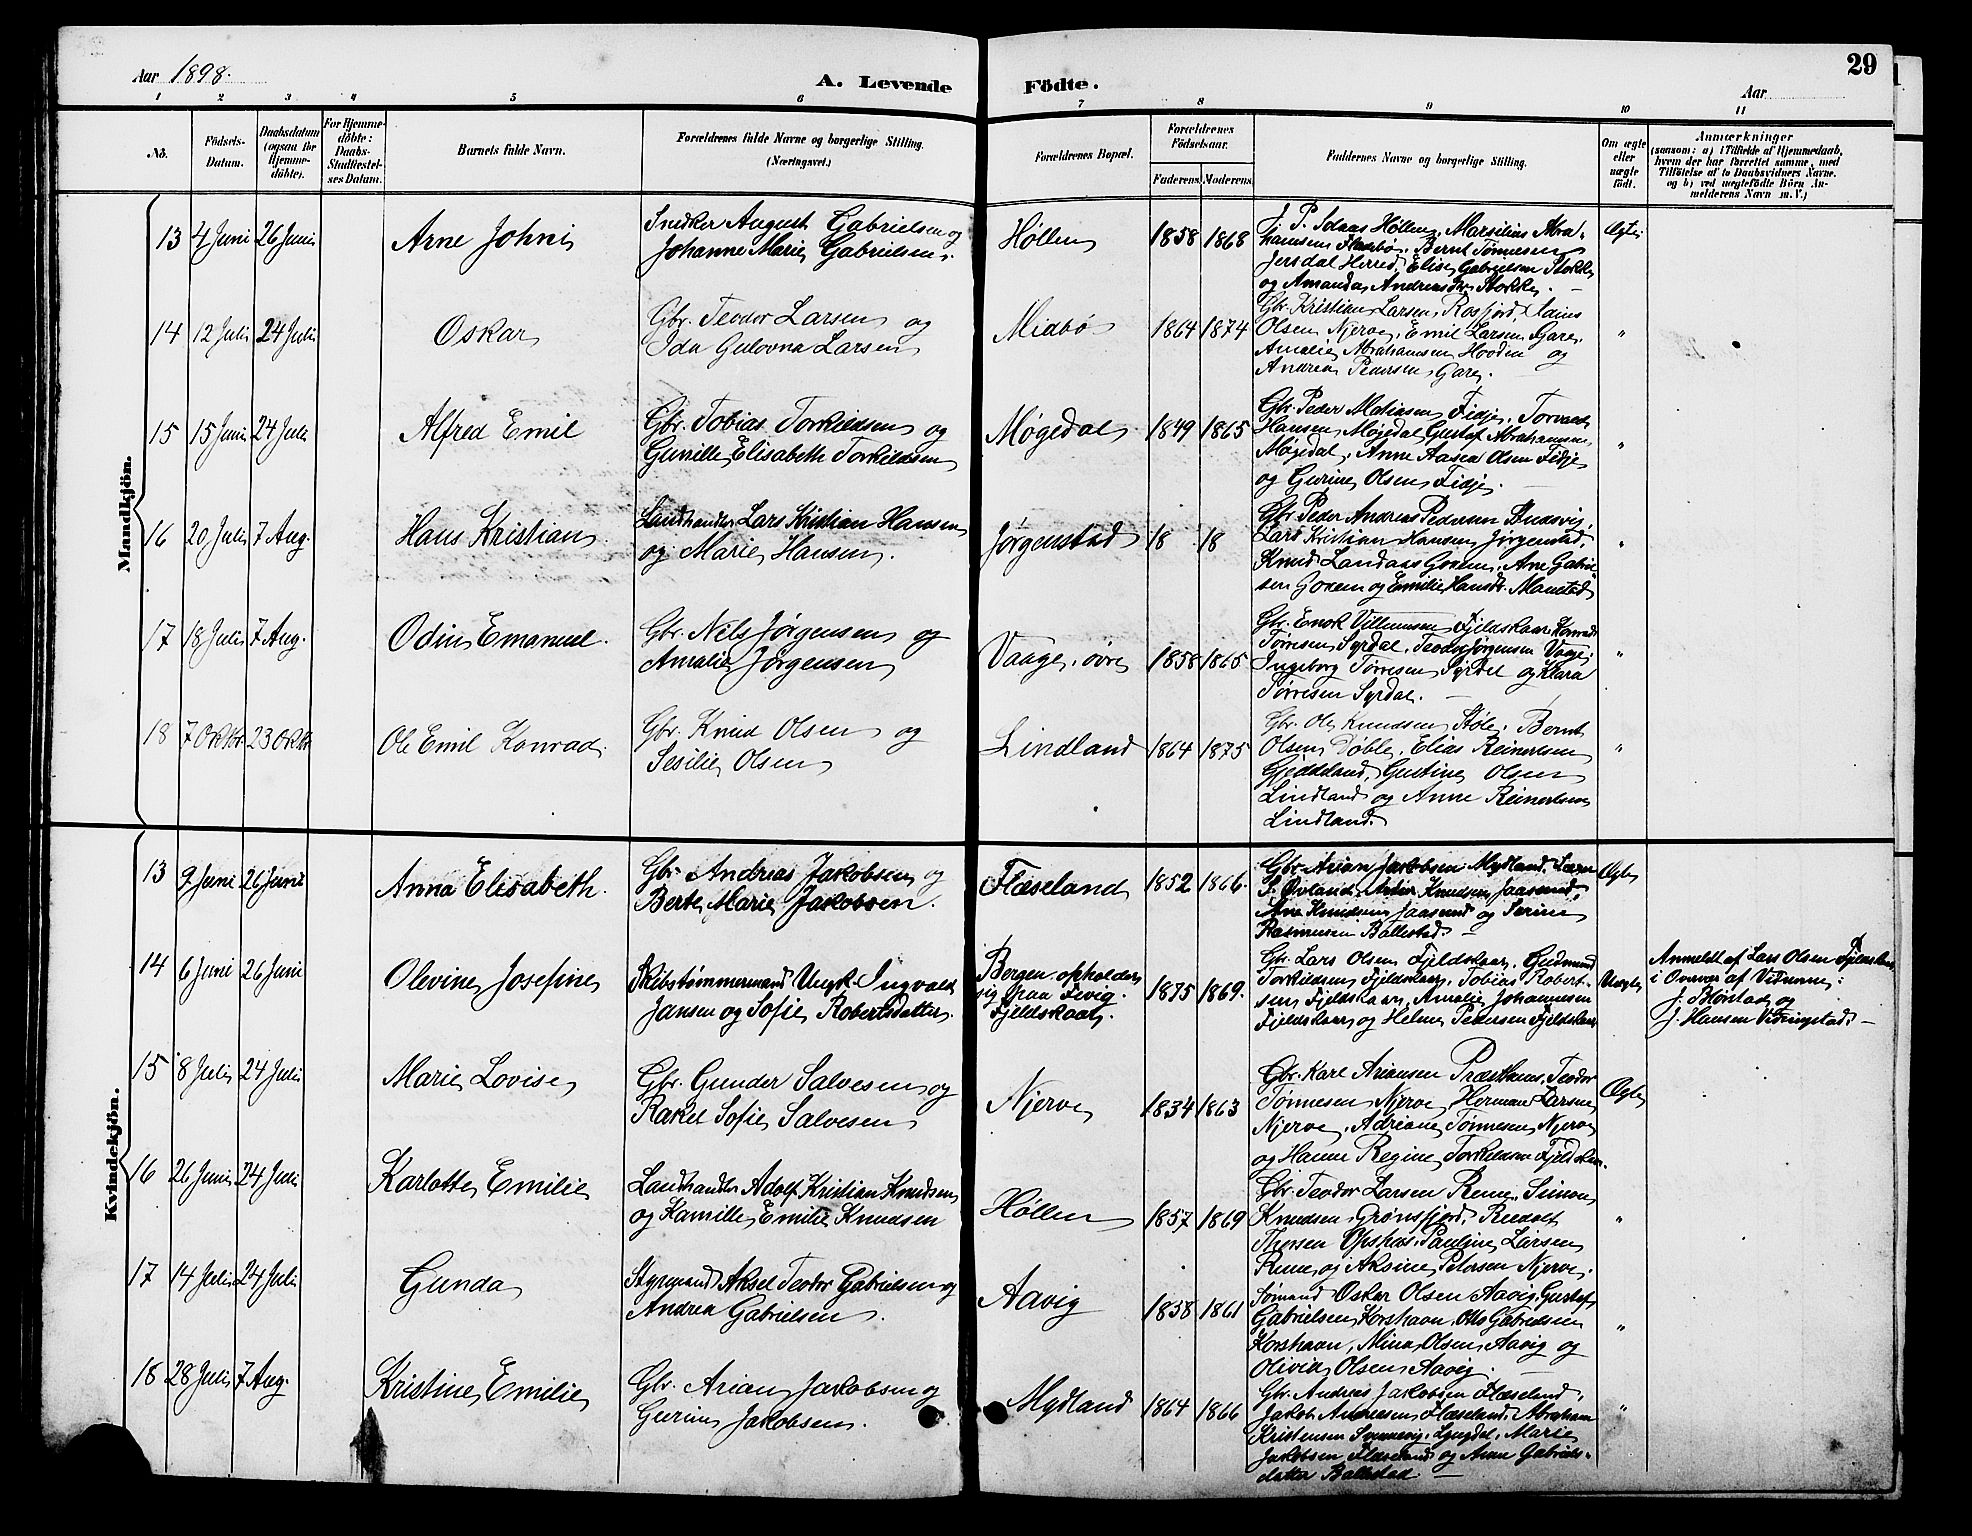 Aar 1898.
A. Levende
Födte.
29
Aar
1 2 3 4 5 6 7 8 9 10 11
No.
Födsels-
Datum.
Daabsdatum
(ogsaa for
Hjemme-
döbte).
For Hjemme-
döbte:
Daabs-
Stadfæstel-
ses Datum.
Barnets fulde Navn.
Forældrenes fulde Navne og borgerlige Stilling.
(Næringsvei.)
Forældrenes Bopæl.
Forældrenes
Födselsaar.
Faderens. Moderens.
Faddernes Navne og borgerlige Stilling.
Om ægte
eller
uægte
födt.
Anmærkninger
(saasom: a) i Tilfælde af Hjemmedaab,
hvem der har forrettet samme, med
Tilföielse af to Daabsvidners Navne.
og b) ved uægtefödte Börn An-
melderens Navn m. V.)
Mandkjön.
13 4 Juni 26 Juni
Arne Johni
Snedker August Gabrielsen og
Johanne Marie Gabrielsen.
Høllen
1858 1868
J. P. Høllen, Marsilius Abra-
hamsen Fladebø, Bernt Tønnesen
Jersdal Herred, Elise Gabrielsen Stokke
og Amanda Andreasdr Stokke.
Ægte
14 12 Juli 24 Juli
Oskar
Gbr. Teodor Larsen og
Ida Gulovna Larsen
Midbø
1864 1874
Gbr. Kristian Larsen, Rosfjord,
Olsen Njerve, Emil Larsen Gare,
Amalie Abrahamsen Hooden og
Andrea Pedersen Gare.
"
15 15 Juni 24 Juli
Alfred Emil
Gbr. Tobias Torkildsen og
Gunille Elisabeth Torkildsen
Møgedal
1849 1865
Gbr. Peder Matiasen Fidje, Torvald
Hansen Møgedal, Gustaf Abrahamsen
Møgedal, Anne Aasea Olsen Fidje
og Gurine Olsen Fidje.
"
16 20 Juli 7 Aug.
Hans Kristian
Landhandler Lars Kristian Hansen
og Marie Hansen.
Jørgenstad
18 18
Gbr Peder Andreas Pedersen
Lars Kristian Hansen Jørgenstad,
Knud Landaas Gonem, Ane Gabriel-
sen Gonem og Emilie Hansdr. Manstad
"
17 18 Juli 7 Aug.
Odin Emanuel.
Gbr. Nils Jørgensen og
Amalie Jørgensen
Vaage, øvre
1858 1865
Gbr. Enok Villumsen Fjeldskaar, Konrad
Tørresen Syrdal, Teodor Jørgensen Vaage,
Ingeborg Tørresen Syrdal og Klara
Tørresen Syrdal.
"
18 7 Oktbr. 23 Oktbr
Ole Emil Konrad.
Gbr. Knud Olsen og
Sesilie Olsen
Lindland
1864 1875
Gbr. Ole Knudsen Støle, Bernt
Olsen Doble, Elias Reinertsen
Gjeddeland, Gustine Olsen
Lindland og Anne Reinertsen
Lindland.
"
Kvindekjön.
13 9 Juni 26 Juni
Anna Elisabeth.
Gbr Andrias Jakobsen og
Berte Marie Jakobsen.
Flæseland
1852 1866.
Gbr Arian Jakobsen Mydland,
S. Øvland, Knudsen Jaasund,
Ane Knudsen Jaasund og Serine
Rasmussen Ballestad.
Ægte
14 6 Juni 26 Juni
Olevine Josefine
Skibstømmermand Ungk. Ingvald
Jansen og Sofie Robertsdatter.
Bergen, opholder
sig paa Fevig.
Fjeldskaar.
1875 1869.
Gbr. Lars Olsen Fjeldskaar, Gudmund
Torkildsen Fjeldskaar, Tobias Robert-
sen Fjeldskaar, Amalie Johannesen
Fjeldskaar og Helene Pedersen Fjeldskaar
Uægte
Anmeldt af Lars Olsen Fjeldskaar
i Overvær af Vidnerne:
J. Blørstad og
J. Hansen Vidringstad.
15 8 Juli 24 Juli
Marie Lovise
Gbr. Gunder Salvesen og
Rakel Sofie Salvesen
Njerve
1834 1863
Gbr. Karl Ariansen Præsthus, Teodor
Tønnesen Njerve, Herman Larsen
Njerve, Adriane Tønnesen Njerve
og Hanne Regine Torkildsen Fjeldskaar.
Ægte
16 26 Juni 24 Juli
Karlotte Emilie
Landhandler Adolf Kristian Knudsen
og Kamille Emilie Knudsen
Høllen
1857 1869
Gbr. Teodor Larsen Reme, Simon
Knudsen Grønsfjord, Rudolf
Thorsen Opshus, Pauline Larsen
Reme og Aksine Petersen Njerve.
"
17 14 Juli 24 Juli
Gunda
Styrmand Aksel Teodor Gabrielsen og
Andrea Gabrielsen.
Aavig
1858 1861
Sømand Oskar Olsen Aavig, Gustaf
Gabrielsen Korshavn, Otto Gabrielsen
Korshavn, Mina Olsen Aavig og
Olivia Olsen Aavig.
"
18 28 Juli 7 Aug.
Kristine Emilie
Gbr. Arian Jakobsen og
Gurine Jakobsen.
Mydland
1864 1866
Gbr. Andreas Jakobsen Flæseland,
Jakob Andreasen Flæseland, Abraham
Kristensen Lyngdal, Marie
Jakobsen Flæseland og Anne Gabriels-
datter Ballestad.
"